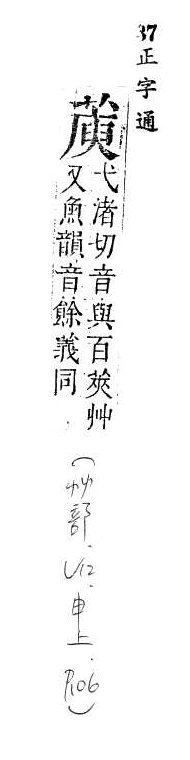 37正字通
弋渚切音與百莢艸
又魚韻音餘義同
(艸部.V12.申上.P106)